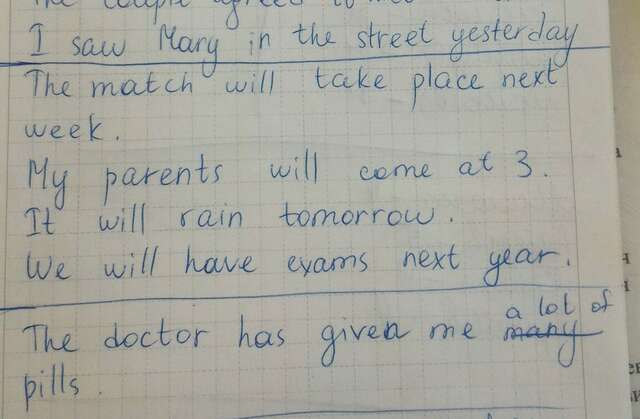 The couple agreed to
I saw Mary in the street yesterday
The match will take place next
week.
My parents will come at 3.
It will rain tomorrow.
We will have exams next year.
a lot of
The doctor has given me many
pills.